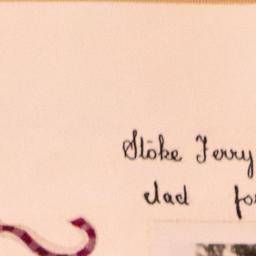 Stoke Ferry
clad for